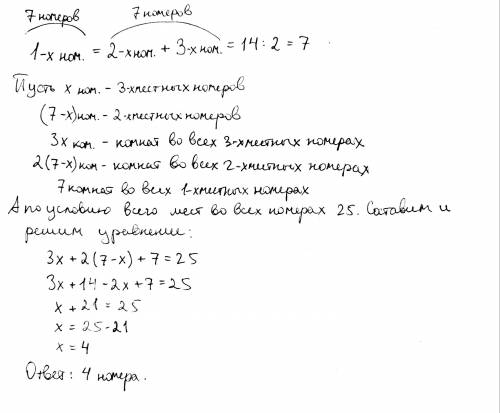 7 номеров 7 номеров
1-х ном. = 2-х ном. + 3-х ном. = 14 : 2 = 7
Пусть x ном. - 3-хместных номеров
(7-x) ном. - 2-хместных номеров
3x ком. - комнат во всех 3-хместных номерах
2(7-x) ком - комнат во всех 2-хместных номерах
7 комнат во всех 1-хместных номерах
А по условию всего мест во всех номерах 25. Составим и
решим уравнение:
3x + 2(7-x) + 7 = 25
3x + 14 - 2x + 7 = 25
x + 21 = 25
x = 25-21
x = 4
Ответ: 4 номера.